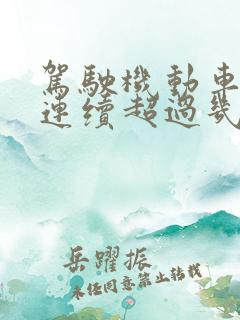 駕駛機動車
連續超過幾
岳躍振
未任同意禁止转载